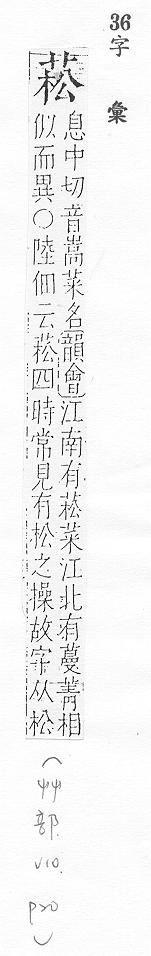 36字 彙
菘 息中切音嵩菜名韻會江南有菘菜江北有蔓菁相
似而異○陸佃云菘四時常見有松之操故字从松
(艸部 v10. p20)